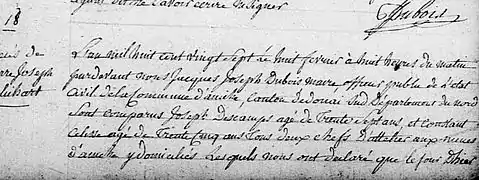 savoir écrire ni signer
JJDubois
18
re Joseph
L'an mil huit cent vingt sept le huit fevrier a huit heures du matin
pardevant nous Jacques Joseph Dubois maire officier public de l'etat
Civil de la Commune d'aniche, Canton de douai Sud Departement du nord
Sont comparus Joseph Descamps agé de trente sept ans, et Constant
agé de trente cinq ans tous deux chefs D'attelier aux mines
D'aniche y domiciliés. Lesquels nous ont déclaré que le jour D'hier